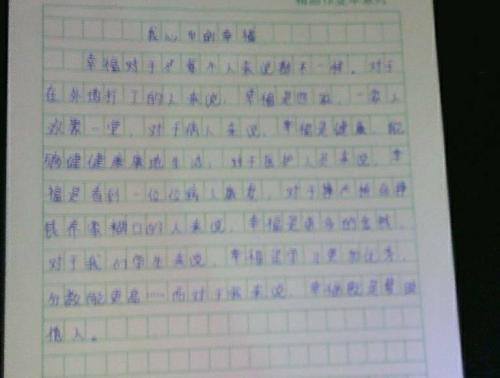 我心中的幸福
幸福对于每个人来说都不一样。对于
在外地打工的人来说，幸福是回家，一家人
欢聚一堂，对于病人来说，幸福是健康，能
够健健康康地生活，对于医护人员来说，幸
福是看到一位位病人康复，对于挣
钱养家糊口的人来说，幸福是更多的金钱，
对于我们学生来说，幸福是学习更加优秀，
分数能更高……而对于我来说，幸福就是
情人。